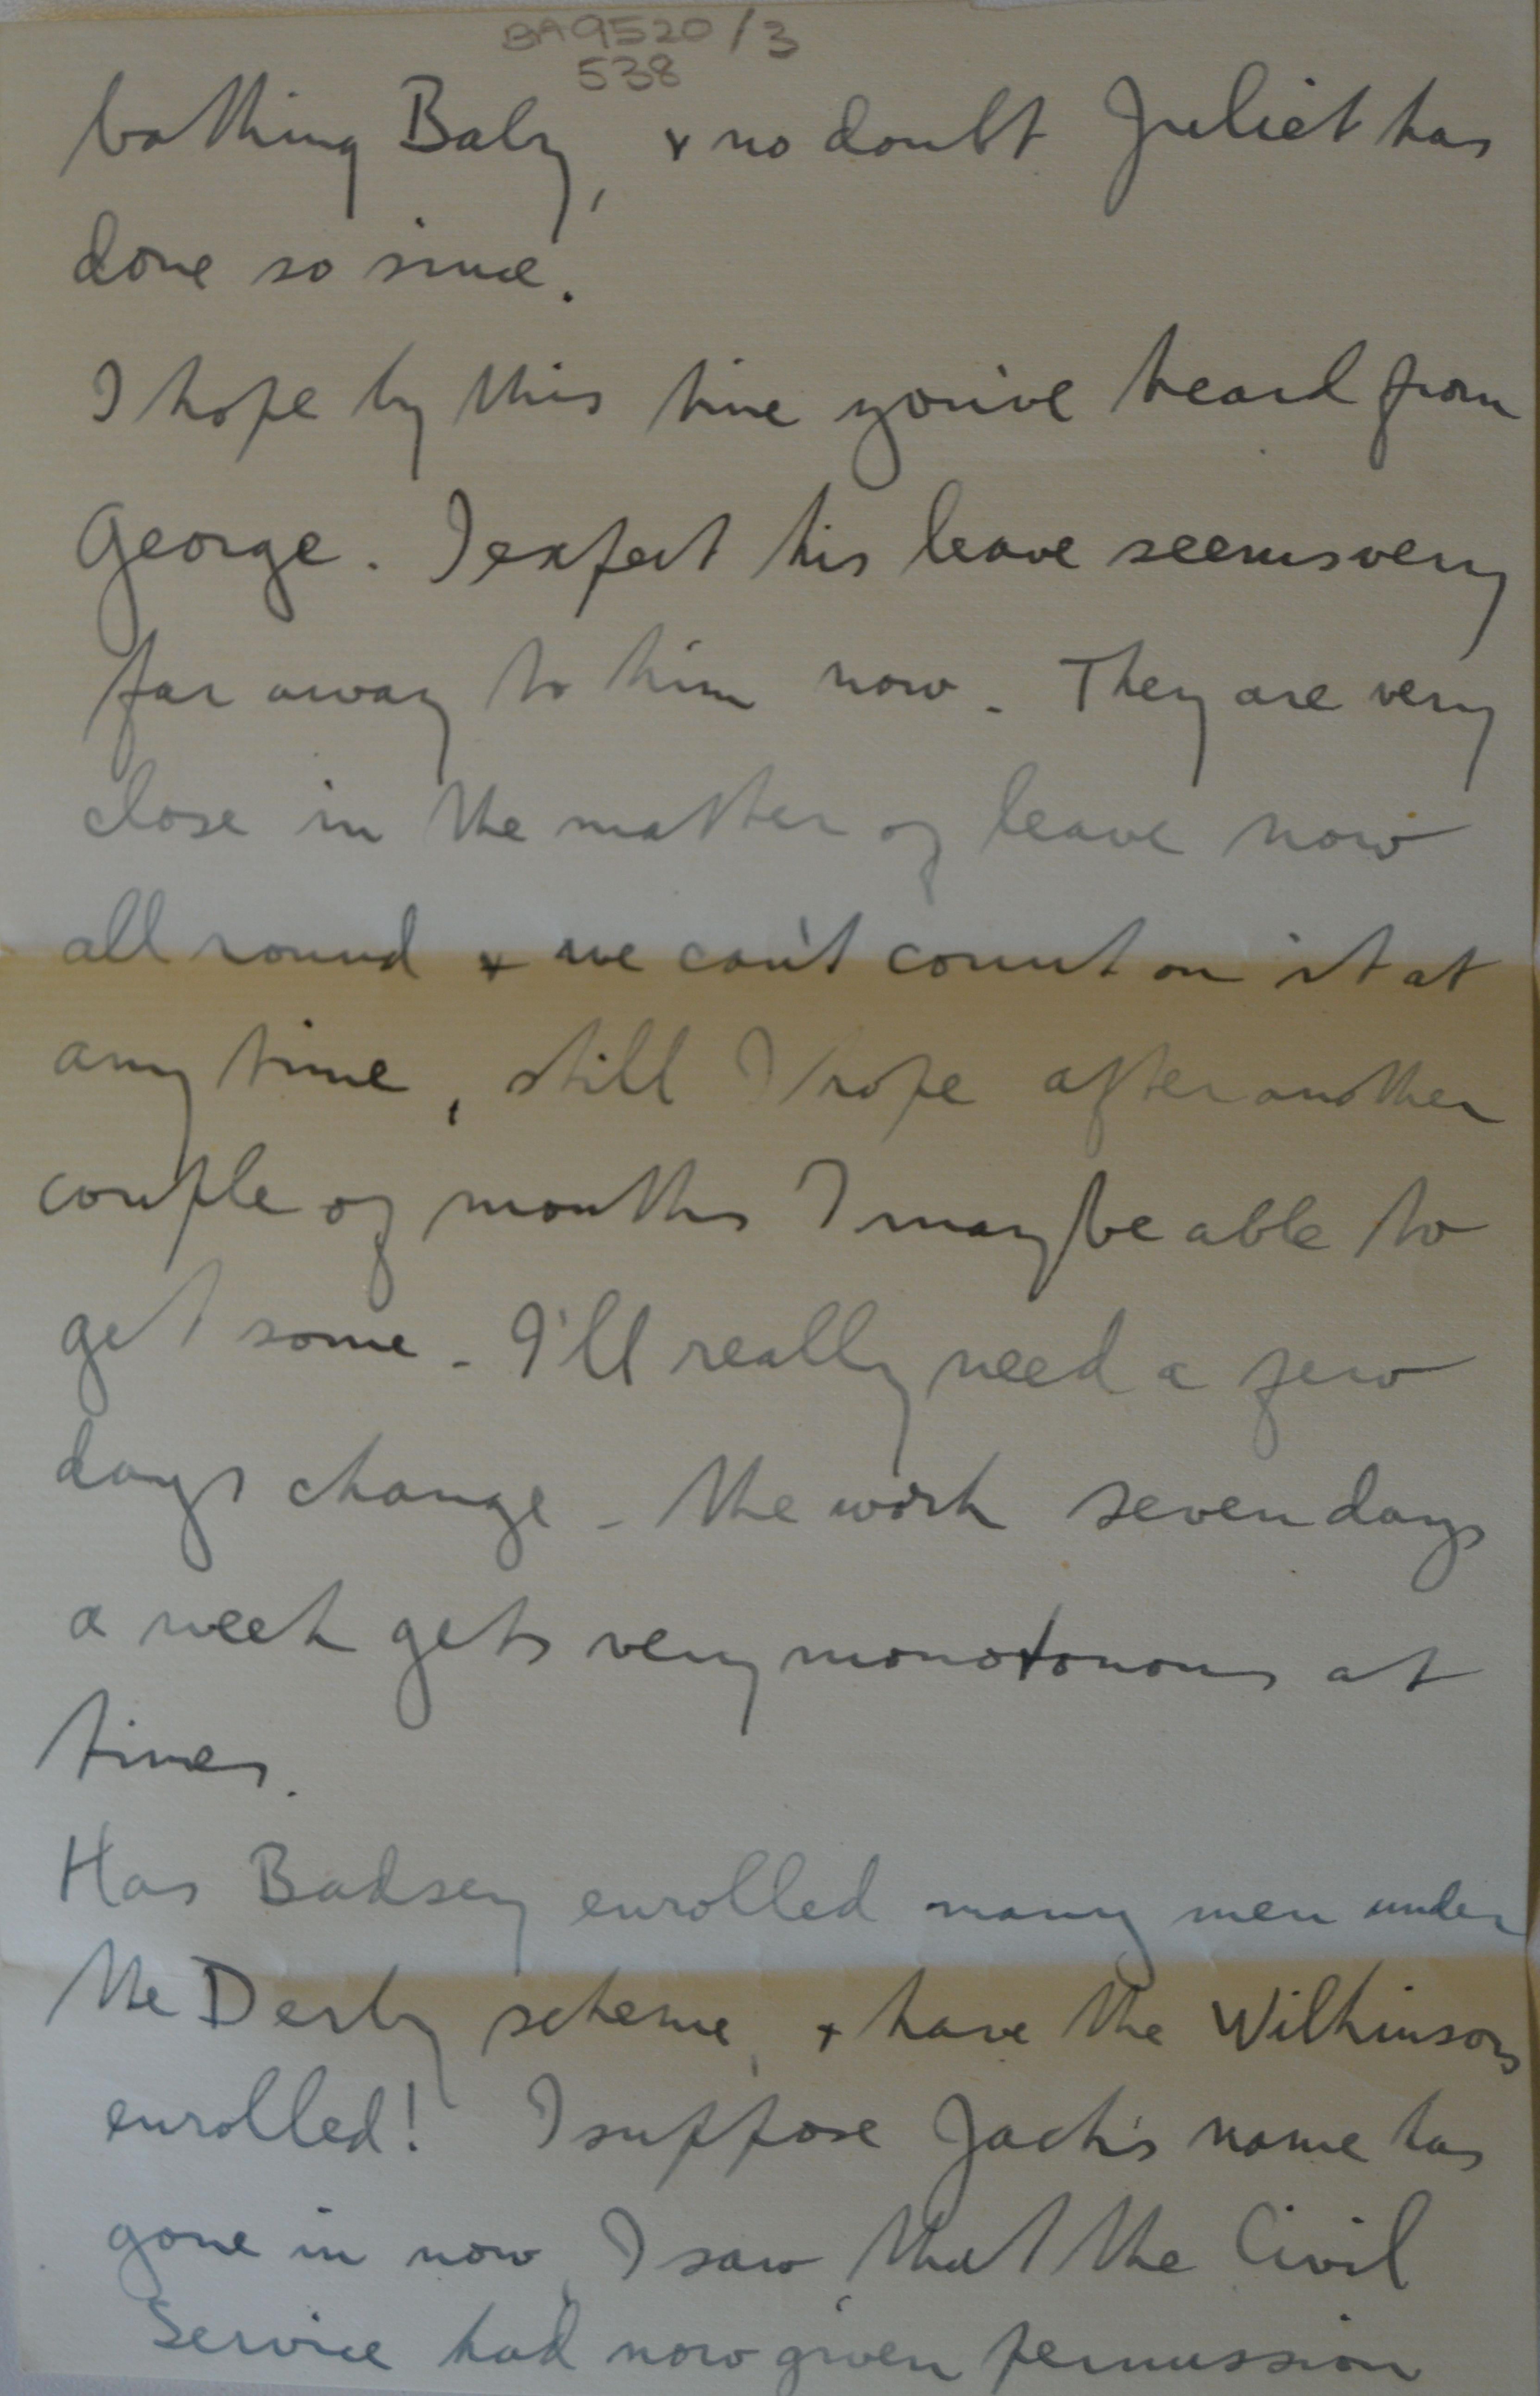 BA9520/3
538
bathing Baby, & no doubt Juliet has
done so since.
I hope by this time you've heard from
George. I expect his leave seems very
far away to him now. They are very
close in the matter of leave now
all round & we can't count on it at
any time, still I hope after another
couple of months I may be able to
get some. I'll really need a few
days change - the work seven days
a week gets very monotonous at
times.
Has Badsey enrolled many men under
the Derby scheme, & have the Wilkinsons
enrolled! I suppose Jack's name has
gone in now, I saw that the Civil
Service had now given permission